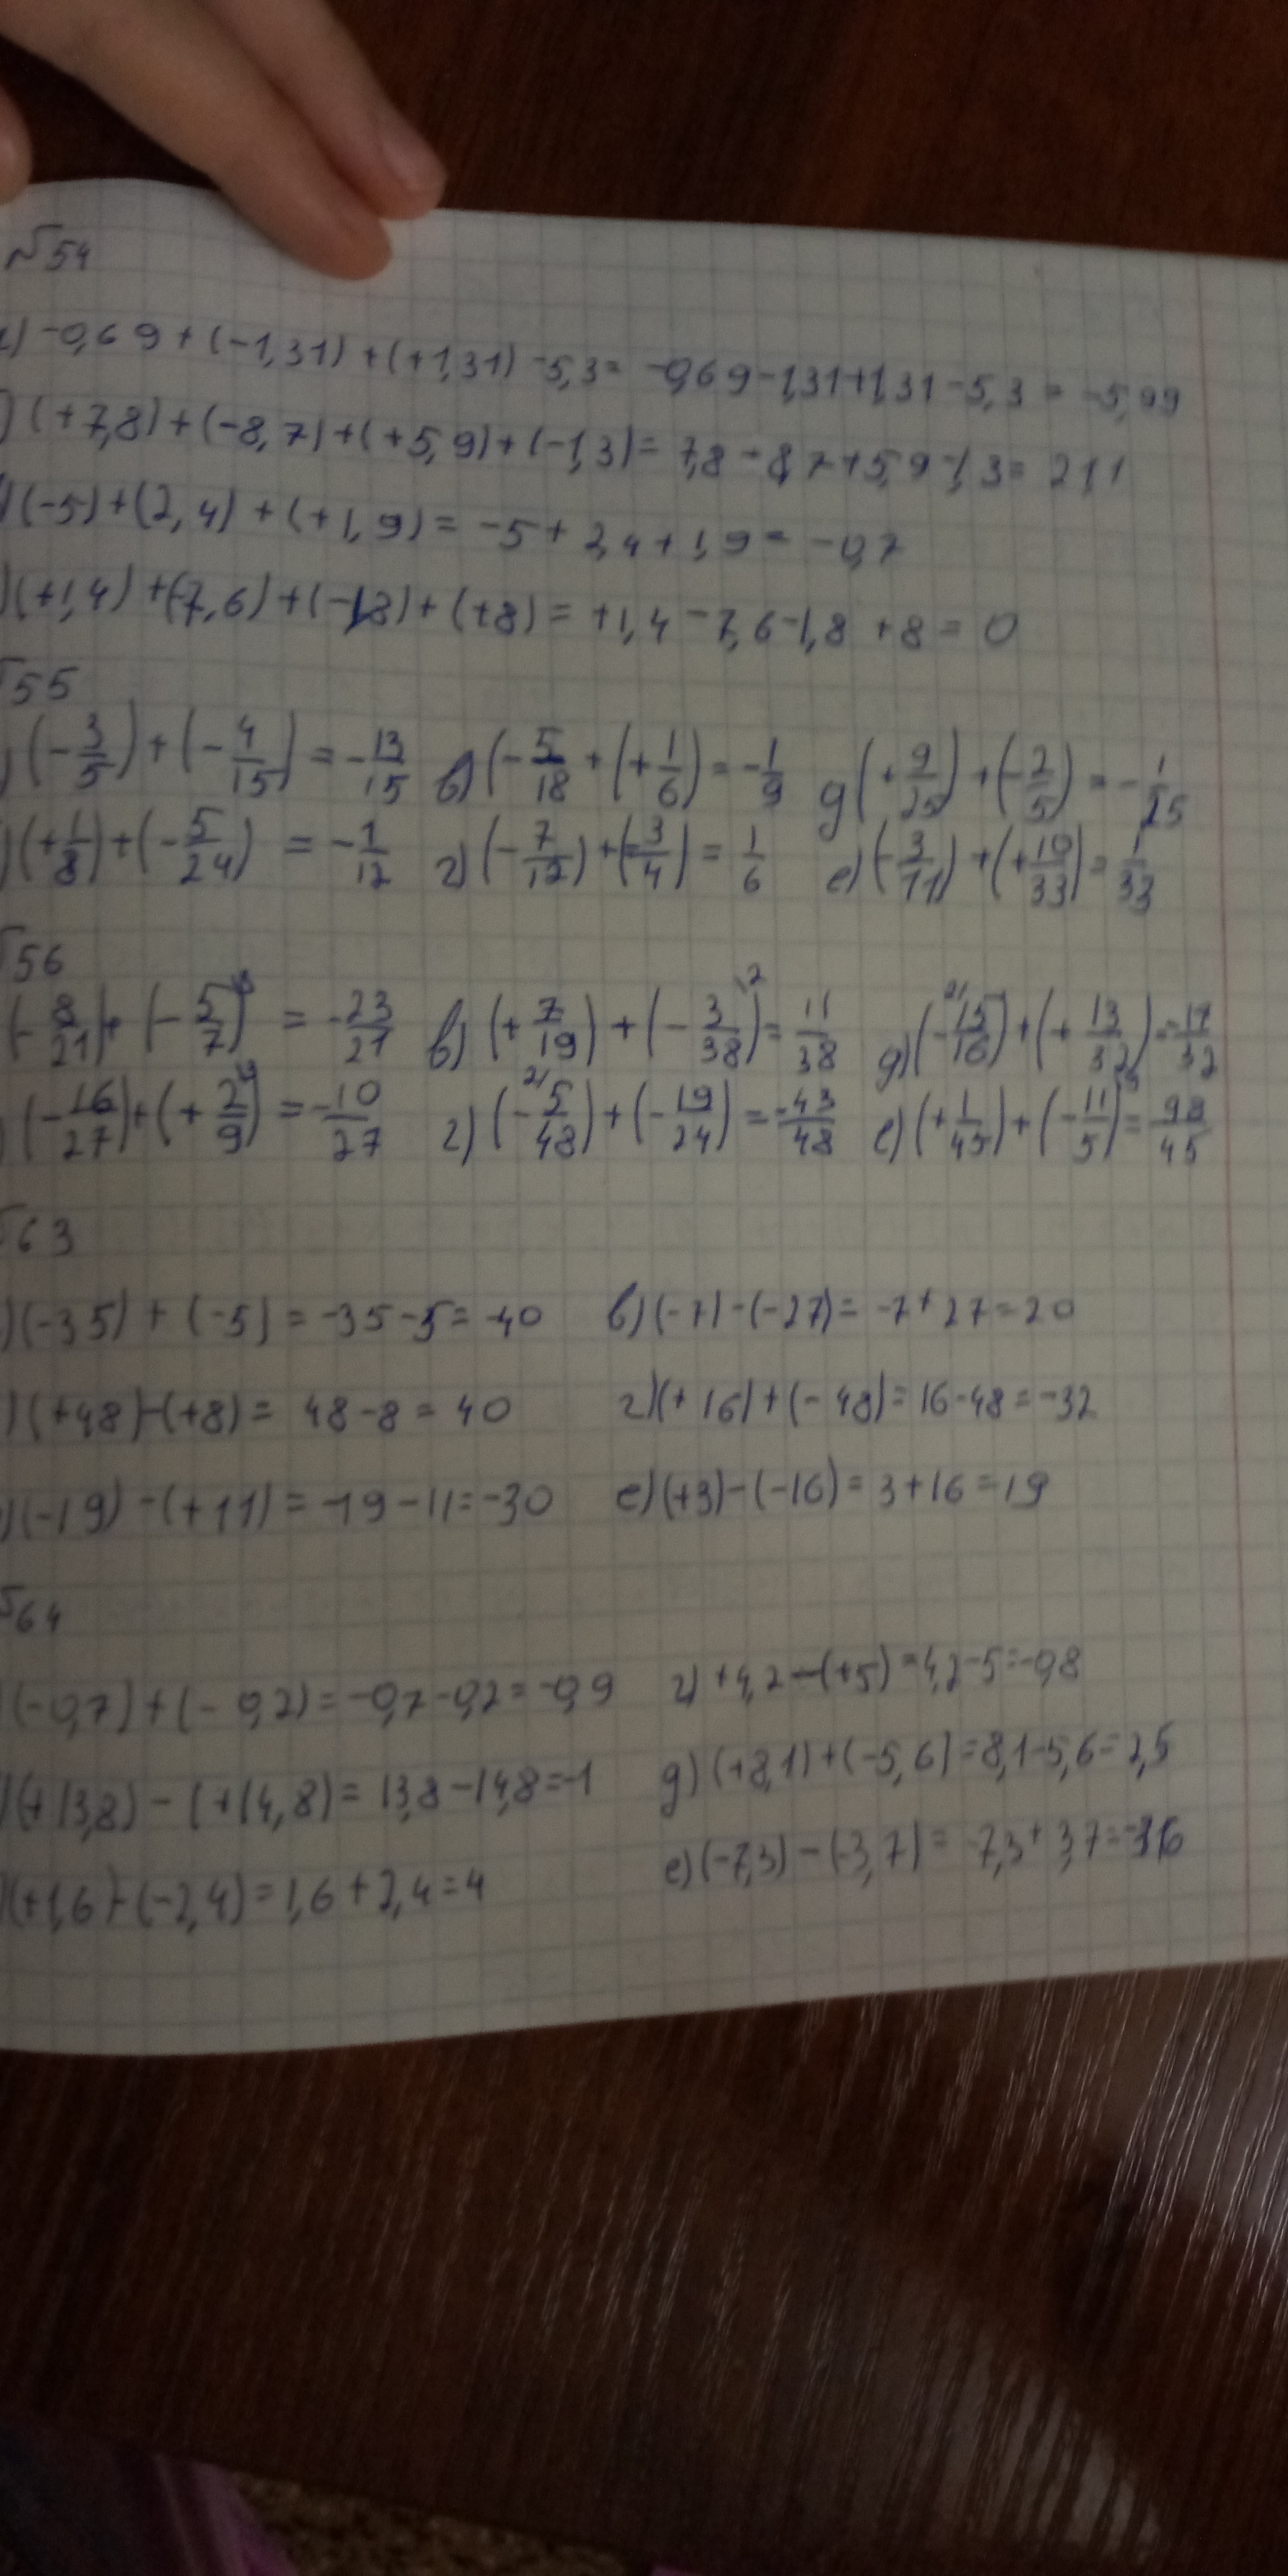 №54
) -0,69 + (-1,31) + (+1,31) -5,3 = -0,69 - 1,31 + 1,31 - 5,3 = -5,99
) (+7,8) + (-8,7) + (+5,9) + (-1,3) = 7,8 - 8,7 + 5,9 - 1,3 = 21,1
) (-5) + (2,4) + (+1,9) = -5 + 2,4 + 1,9 = -0,7
) (+1,4) + (-7,6) + (-1,8) + (+8) = +1,4 - 7,6 - 1,8 + 8 = 0
55
) (-3/5) + (-4/15) = -13/15 в) (-5/18 + (+1/6) = -1/9 д (+9/25) + (-2/5) = -1/25
) (+1/8) + (-5/24) = -1/12 г) (-7/12) + (-3/4) = 1/6 е) (-3/11) + (+10/33) = 1/33
56
(-8/21) + (-5/7) = -23/21 в) (+7/19) + (-3/38) = 11/38 д) (-15/16) + (+13/32) = -17/32
) (-16/27) + (+2/9) = -10/27 г) (-5/48) + (-19/24) = -43/48 е) (+1/45) + (-11/5) = 98/45
63
) (-35) + (-5) = -35 - 5 = -40 в) (-7) - (-27) = -7 + 27 = 20
) (+48) - (+8) = 48 - 8 = 40 г) (+16) + (-48) = 16 - 48 = -32
) (-19) - (+11) = -19 - 11 = -30 е) (+3) - (-16) = 3 + 16 = 19
64
(-0,7) + (-0,2) = -0,7 - 0,2 = -0,9 г) +4,2 - (+5) = 4,2 - 5 = -0,8
) (+13,8) - (+14,8) = 13,8 - 14,8 = -1 д) (+8,1) + (-5,6) = 8,1 - 5,6 = 2,5
) (+1,6) - (-2,4) = 1,6 + 2,4 = 4 е) (-7,3) - (-3,7) = -7,3 + 3,7 = -3,6